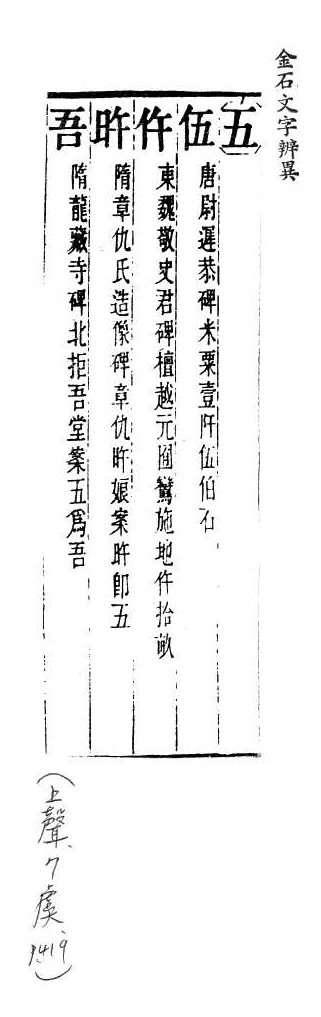 金石文字辨異
五
伍 唐尉遲恭碑米粟壹阡伍伯石
仵 東魏敬史君碑檀越元囿鸞施地仵拾畝
旿 隋章仇氏造像碑章仇旿娘案旿卽五
吾 隋龍藏寺碑北拒吾堂案五爲吾
(上聲、7麌、1419)